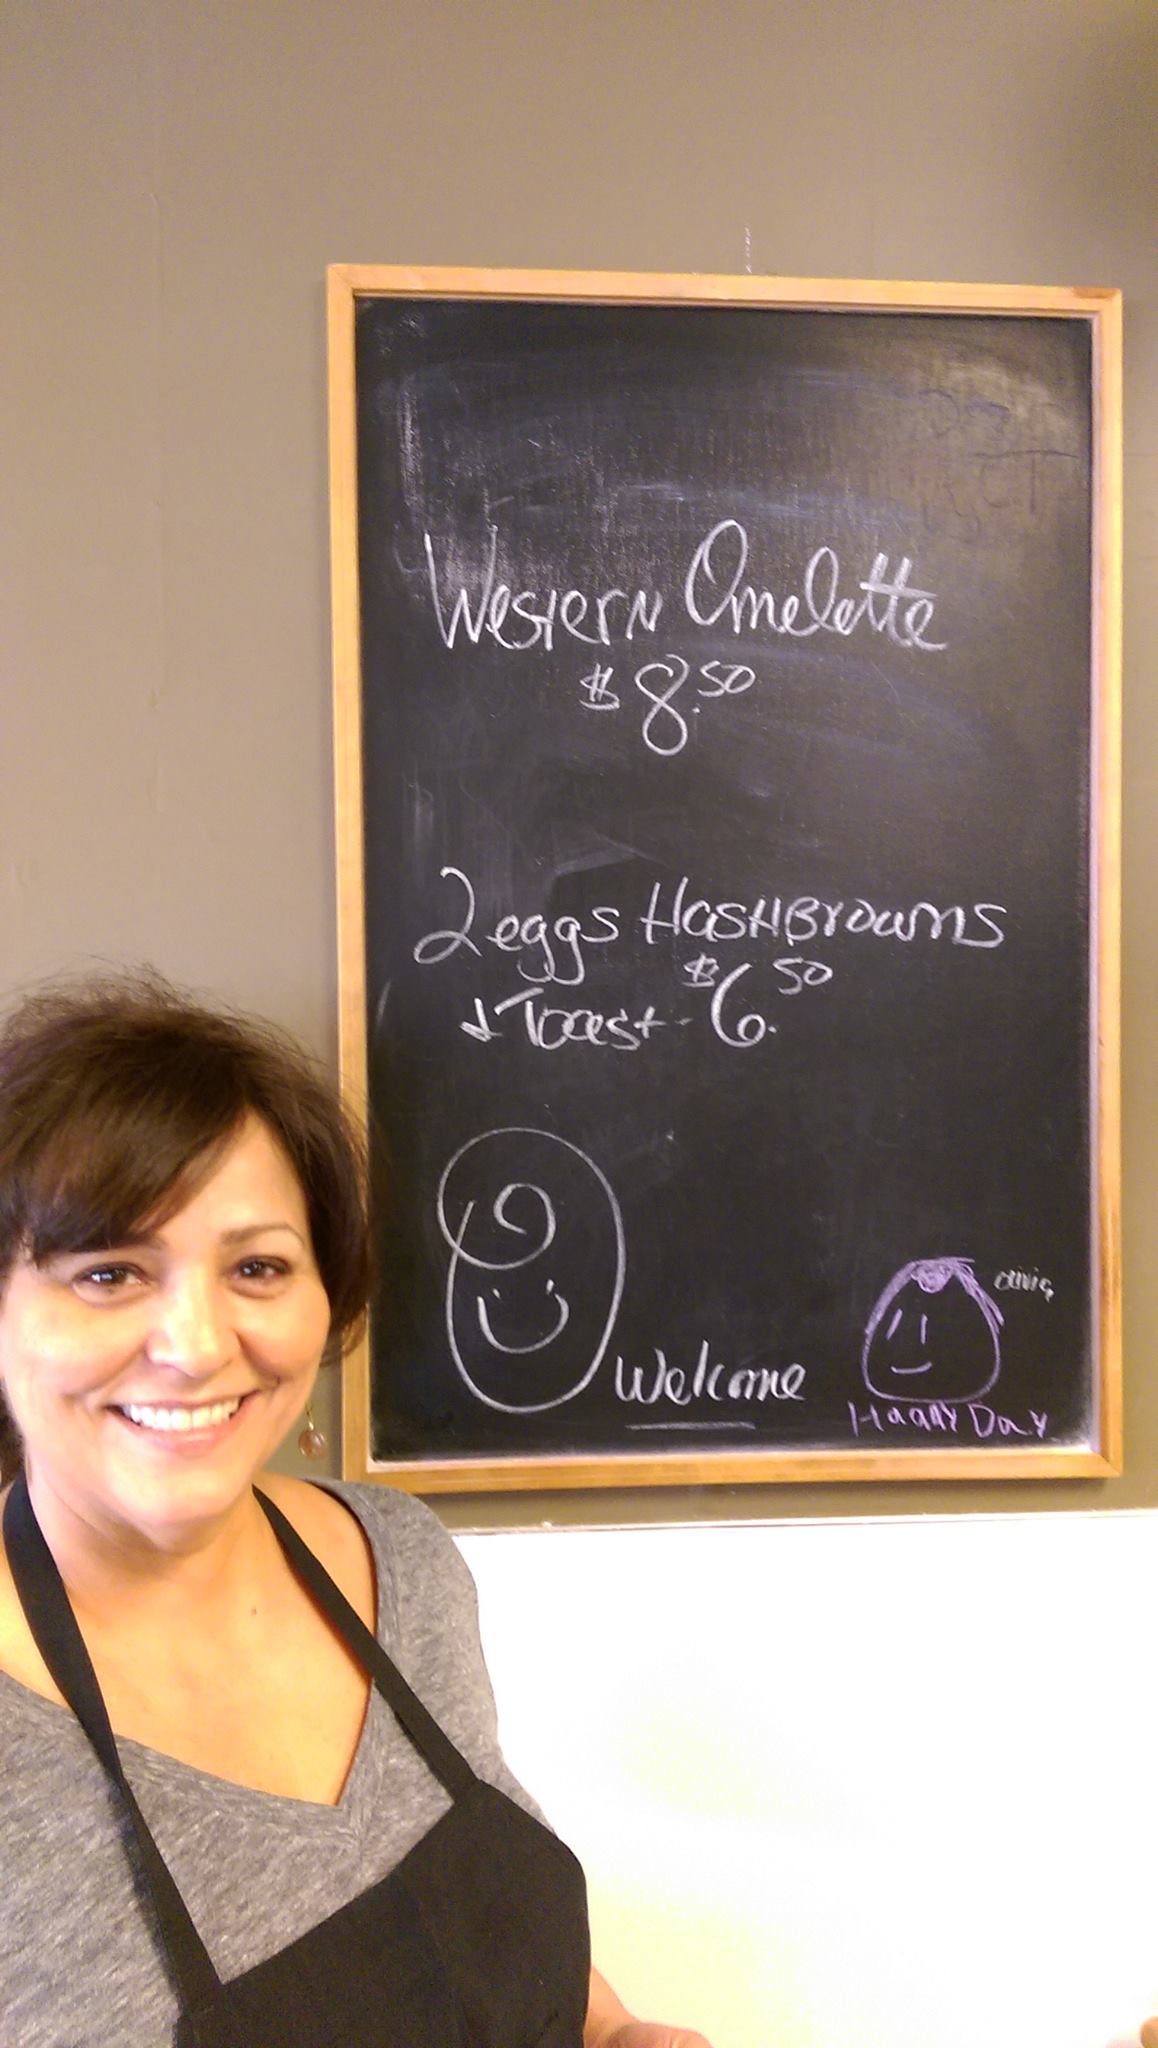 Western Omelette
$8.50
2 eggs HasHBrowns
+ Toast - $6.50
Olivia
Welcome
HappY Day